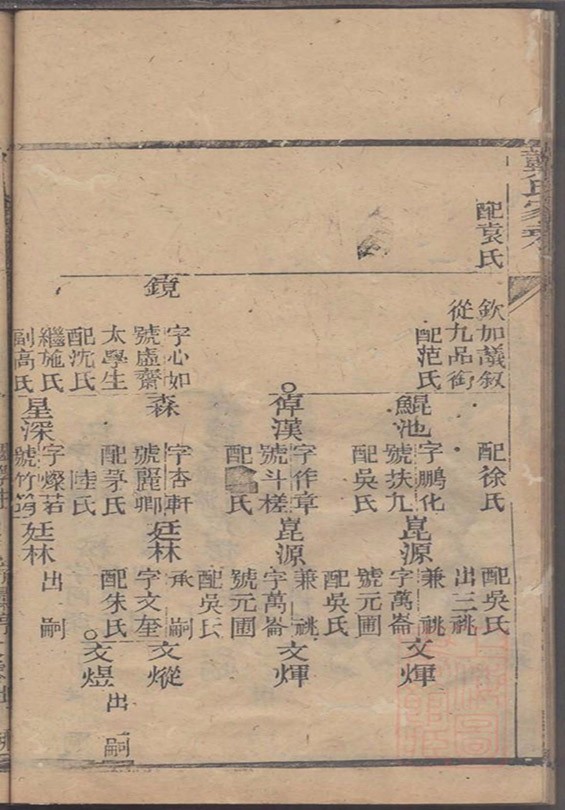 戴氏家乘
配袁氏
欽加議叙
從九品銜
配范氏
鏡
字心如
號虛齋
太學生
配沈氏
繼施氏
副高氏
配徐氏
鯤池
字鵬化
號扶九
配吳氏
倬漢
字作章
號斗槎
配氏
森
字杏軒
號麗卿
配茅氏
陸氏
星深
字燦若
號竹筠
配吳氏
出三祧
崑源
兼祧
字萬崙
號元圃
配吳氏
崑源
兼祧
字萬崙
號元圃
配吳氏
廷林
承嗣
字文奎
配朱氏
廷林
出嗣
文煇
文煇
文熎
文煜
出嗣